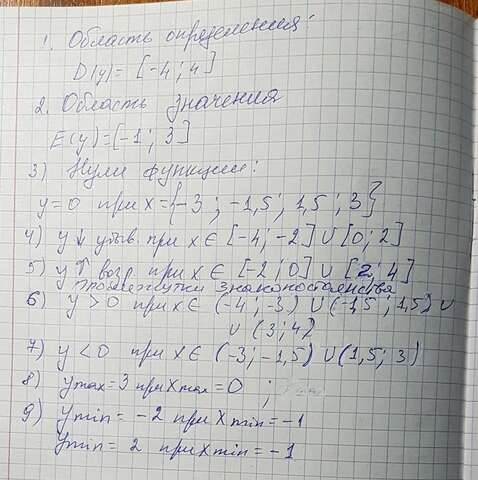 1. Область определения:
D(y) = [-4; 4]
2. Область значения
E(y) = [-1; 3]
3) Нули функции:
y = 0 при x = {-3; -1,5; 1,5; 3}
4) y ↓ убыв. при x ∈ [-4; -2] ∪ [0; 2]
5) y ↑ возр при x ∈ [-2; 0] ∪ [2; 4]
промежутки знакопостоянства
6) y > 0 при x ∈ (-4; -3) ∪ (-1,5; 1,5) ∪
∪ (3; 4)
7) y < 0 при x ∈ (-3; -1,5) ∪ (1,5; 3)
8) ymax = 3 при xmax = 0 ;
9) ymin = -2 при xmin = -1
ymin = 2 при xmin = -1